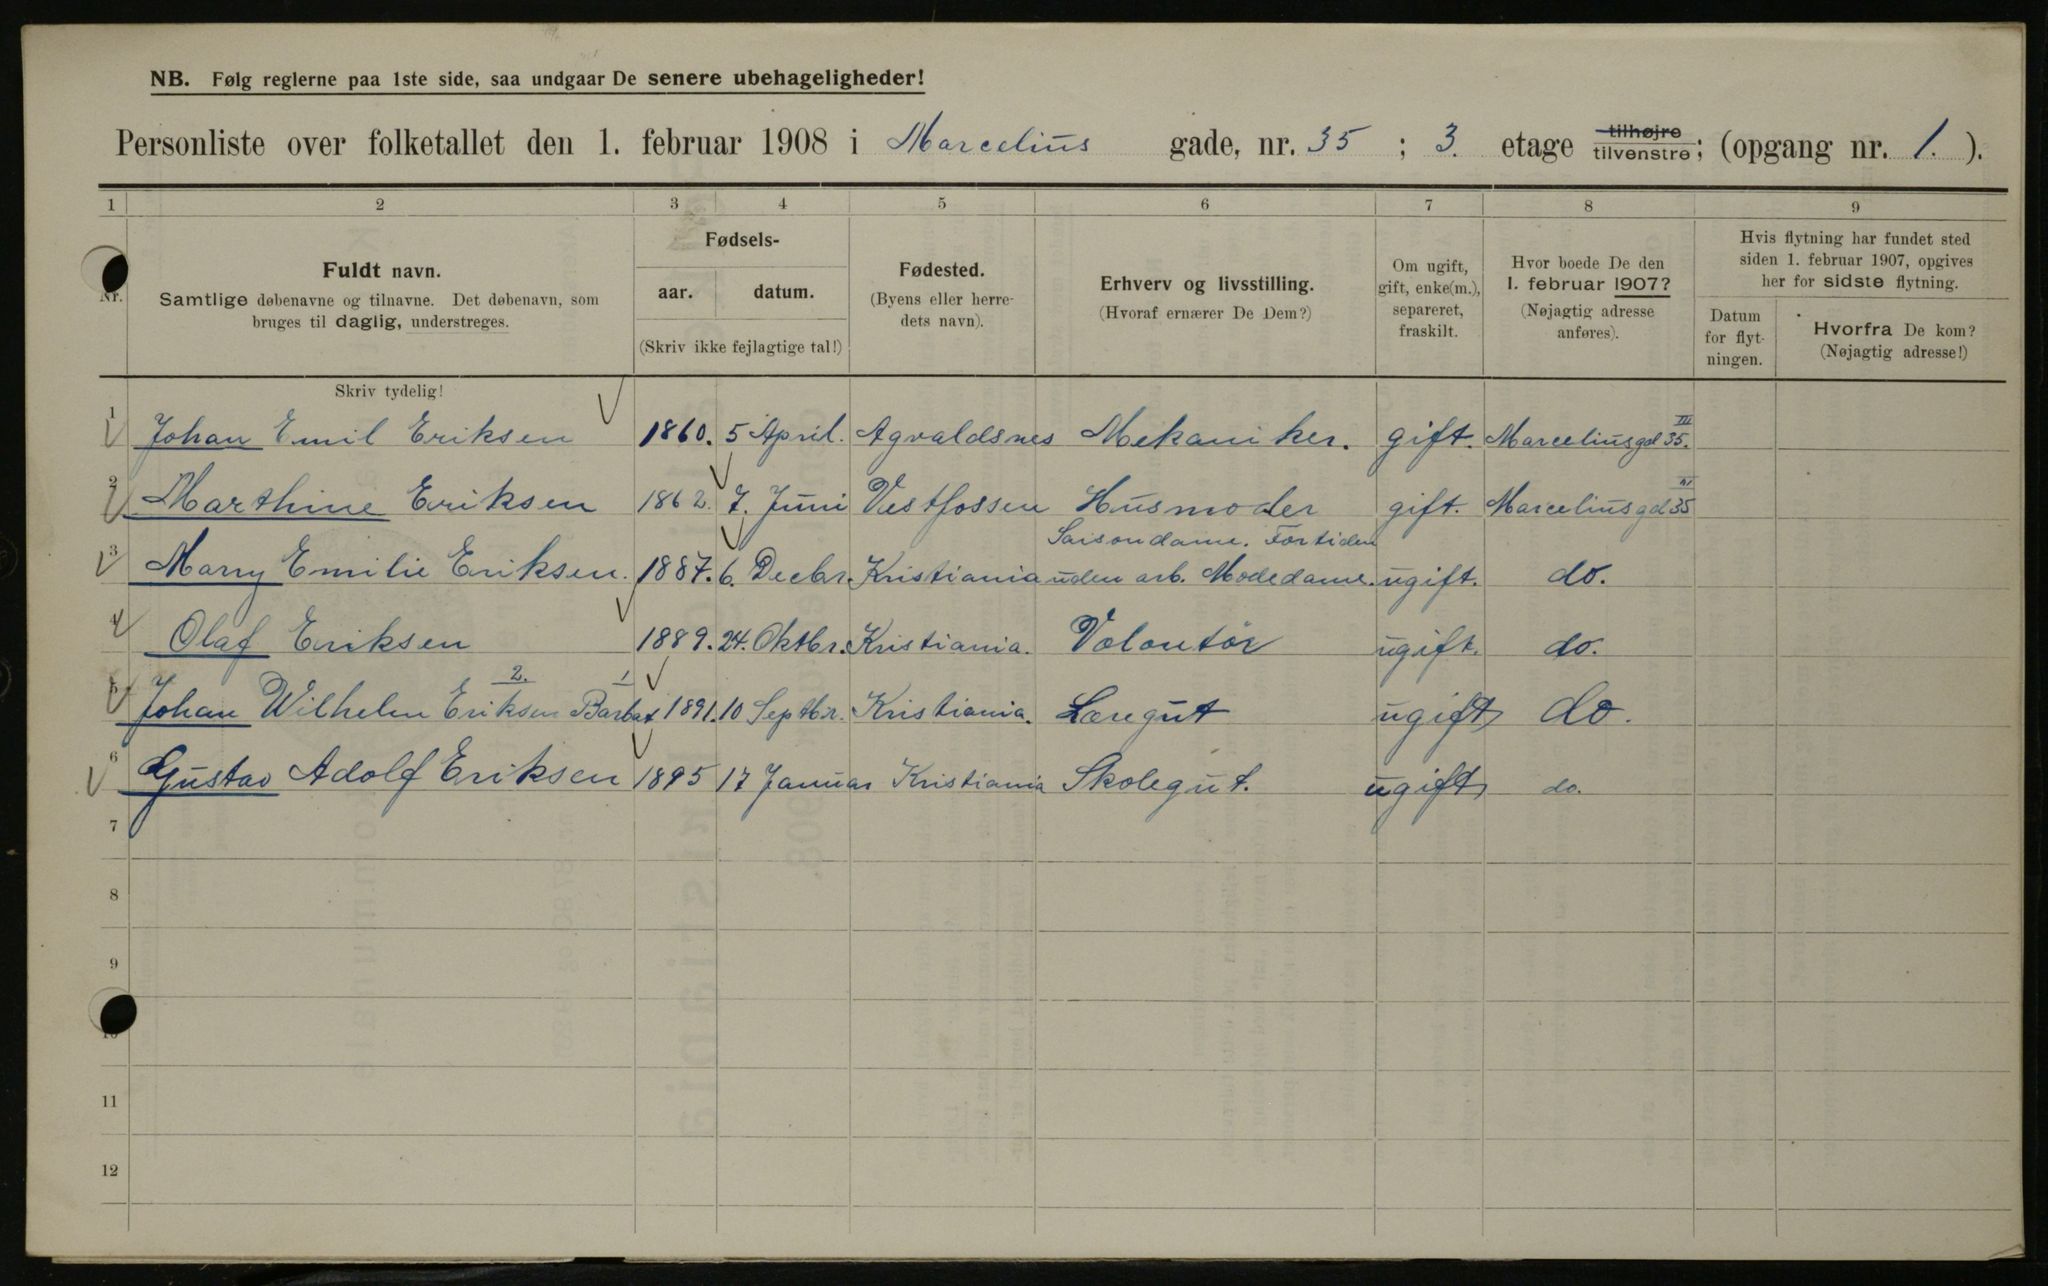 NB. Følg reglerne paa 1ste side, saa undgaar De senere ubehageligheder!
Personliste over folketallet den 1. februar 1908 i Marcelius gade, nr. 35 ; 3. etage tilhøjre tilvenstre; (opgang nr. 1. ).
1 2 3 4 5 6 7 8 9
Nr.
Fuldt navn.
Samtlige døbenavne og tilnavne. Det døbenavn, som
bruges til daglig, understreges.
Fødsels-
aar. datum.
(Skriv ikke fejlagtige tal!)
Fødested.
(Byens eller herre-
dets navn).
Erhverv og livsstilling.
(Hvoraf ernærer De Dem?)
Om ugift,
gift, enke(m.),
separeret,
fraskilt.
Hvor boede De den
1. februar 1907?
(Nøjagtig adresse
anføres).
Hvis flytning har fundet sted
siden 1. februar 1907, opgives
her for sidste flytning.
Datum
for flyt-
ningen.
Hvorfra De kom?
(Nøjagtig adresse!)
Skriv tydelig!
1 Johan Emil Eriksen 1860. 5 April. Agvaldsnes Mekaniker. gift. Marceliusgd 35. III
2 Marthine Eriksen 1862. 7. Juni Vestfossen Husmoder gift. Marceliusgd 35 III
Saisondame. Fortiden
3 Marry Emilie Eriksen. 1887. 6. Decbr. Kristiania uden arb. Modedame. ugift. do.
4 Olaf Eriksen 1889. 24. Oktbr. Kristiania. Volontør ugift. do.
2. 1
5 Johan Wilhelm Eriksen 1891. 10 Septbr. Kristiania. Læregut ugift do.
6 Gustav Adolf Eriksen 1895 17 Januar Kristiania Skolegut. ugift do.
7
8
9
10
11
12